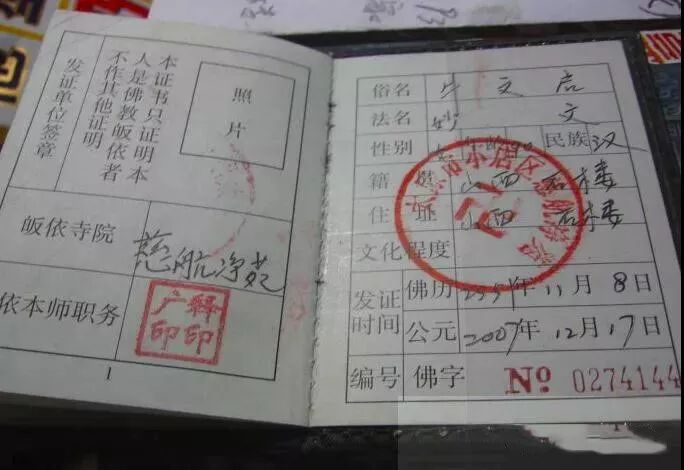 本证书只证明本
人是佛教皈依者
不作其他证明
发证单位签章
照
片
皈依寺院
慈航净苑
依本师职务
广释
印印
1
俗名 牛文启
法名 妙文
性别 民族 汉
籍贯 山西石楼
住址 山西石楼
文化程度
发证
时间
佛历 2551年11月8日
公元 2007年12月17日
编号 佛字 No 0274144